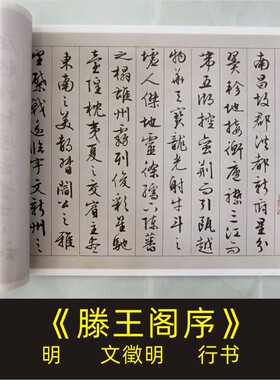 南昌故郡洪都新府星分
翼軫地接衡廬襟三江而
帶五湖控蠻荆而引甌越
物華天寶龍光射牛斗之
墟人傑地靈徐孺下陳蕃
之榻雄州霧列俊彩星馳
臺隍枕夷夏之交賓主盡
東南之美都督閻公之雅
望棨戟遥臨宇文新州之
《滕王阁序》
明 文徵明 行书